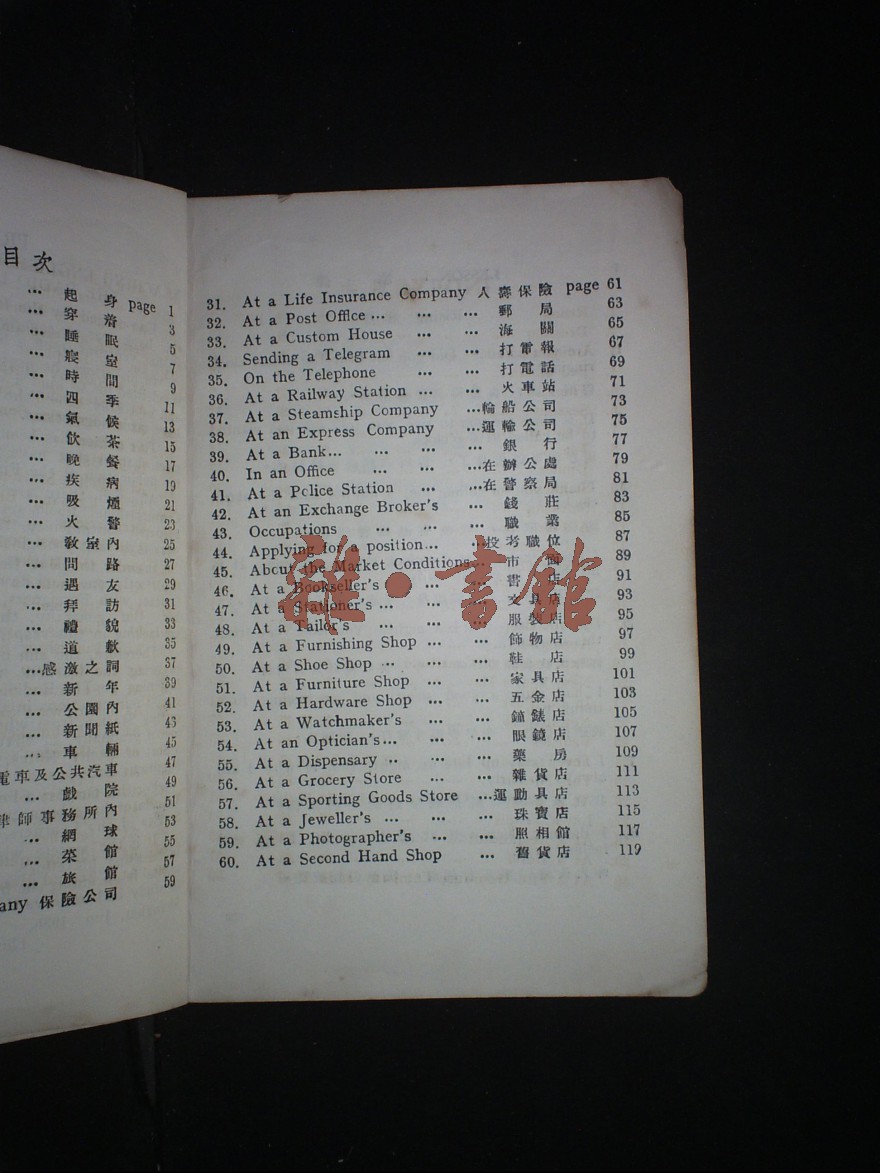 目次
... 起身 page 1
... 穿着 3
... 睡眠 5
... 寢室 7
... 時間 9
... 四季 11
... 氣候 13
... 飲茶 15
... 晚餐 17
... 疾病 19
... 吸煙 21
... 火警 23
... 敎室內 25
... 問路 27
... 遇友 29
... 拜訪 31
... 禮貌 33
... 道歉 35
...感激之詞 37
... 新年 39
... 公園內 41
... 新聞紙 43
... 車輛 45
電車及公共汽車 47
... 戲院 49
律師事務所內 51
... 網球 53
... 菜館 55
... 旅館 57
any 保險公司 59
31. At a Life Insurance Company 人壽保險 page 61
32. At a Post Office ... ... ... 郵局 63
33. At a Custom House ... ... 海關 65
34. Sending a Telegram ... ... 打電報 67
35. On the Telephone ... ... 打電話 69
36. At a Railway Station ... ... 火車站 71
37. At a Steamship Company ...輪船公司 73
38. At an Express Company ...運輸公司 75
39. At a Bank... ... ... ... 銀行 77
40. In an Office ... ... ...在辦公處 79
41. At a Police Station ... ...在警察局 81
42. At an Exchange Broker's ... 錢莊 83
43. Occupations ... ... ... 職業 85
44. Applying for a position... ...投考職位 87
45. About the Market Conditions... 市面 89
46. At a Bookseller's ... ... 書店 91
47. At a Stationer's ... ... ... 文具店 93
48. At a Tailor's ... ... ... 服裝店 95
49. At a Furnishing Shop ... ... 飾物店 97
50. At a Shoe Shop .. ... ... 鞋店 99
51. At a Furniture Shop ... ... 家具店 101
52. At a Hardware Shop ... ... 五金店 103
53. At a Watchmaker's ... ... 鐘錶店 105
54. At an Optician's... ... ... 眼鏡店 107
55. At a Dispensary .. ... ... 藥房 109
56. At a Grocery Store ... ... 雜貨店 111
57. At a Sporting Goods Store ...運動具店 113
58. At a Jeweller's ... ... ... 珠寶店 115
59. At a Photographer's ... ... 照相館 117
60. At a Second Hand Shop ... 舊貨店 119
雜·書館